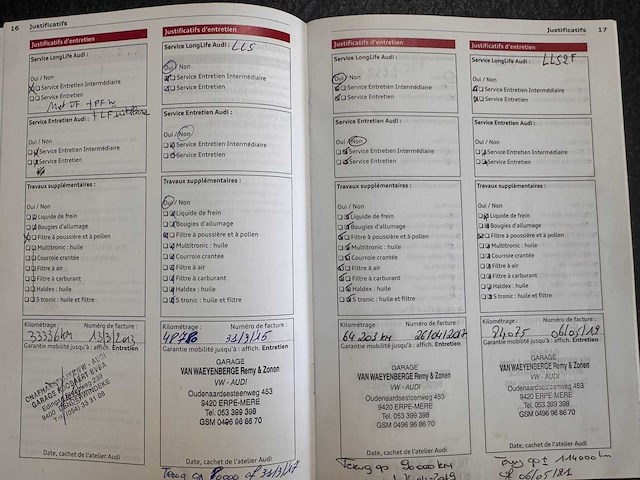 16 Justificatifs
Justificatifs d'entretien
Service LongLife Audi :
Oui / Non
Service Entretien Intermédiaire
Service Entretien
Service Entretien Audi :
Oui / Non
Service Entretien Intermédiaire
Service Entretien
Travaux supplémentaires :
Oui / Non
Liquide de frein
Bougies d'allumage
Filtre à poussière et à pollen
Multitronic : huile
Courroie crantée
Filtre à air
Filtre à carburant
Haldex : huile
S tronic : huile et filtre
Kilométrage : Numéro de facture :
33336km 13/3/2013
Garantie mobilité jusqu'à : affich. Entretien
Date, cachet de l'atelier Audi
Justificatifs d'entretien
Service LongLife Audi : LLS
Oui / Non
Service Entretien Intermédiaire
Service Entretien
Service Entretien Audi :
Oui / Non
Service Entretien Intermédiaire
Service Entretien
Travaux supplémentaires :
Oui / Non
Liquide de frein
Bougies d'allumage
Filtre à poussière et à pollen
Multitronic : huile
Courroie crantée
Filtre à air
Filtre à carburant
Haldex : huile
S tronic : huile et filtre
Kilométrage : Numéro de facture :
48778 31/3/15
Garantie mobilité jusqu'à : affich. Entretien
GARAGE
VAN WAEYENBERGE Remy & Zonen
VW - AUDI
Oudenaardsesteenweg 453
9420 ERPE-MERE
Tel. 053 399 398
GSM 0496 96 86 70
Date, cachet de l'atelier Audi
31/3/17
Justificatifs 17
Justificatifs d'entretien
Service LongLife Audi :
Oui / Non
Service Entretien Intermédiaire
Service Entretien
Service Entretien Audi :
Oui / Non
Service Entretien Intermédiaire
Service Entretien
Travaux supplémentaires :
Oui / Non
Liquide de frein
Bougies d'allumage
Filtre à poussière et à pollen
Multitronic : huile
Courroie crantée
Filtre à air
Filtre à carburant
Haldex : huile
S tronic : huile et filtre
Kilométrage : Numéro de facture :
64 203 km 26/04/2017
Garantie mobilité jusqu'à : affich. Entretien
GARAGE
VAN WAEYENBERGE Remy & Zonen
VW - AUDI
Oudenaardsesteenweg 453
9420 ERPE-MERE
Tel. 053 399 398
GSM 0496 96 86 70
Date, cachet de l'atelier Audi
Terug op 90000 km
Justificatifs d'entretien
Service LongLife Audi : LLS2F
Oui / Non
Service Entretien Intermédiaire
Service Entretien
Service Entretien Audi :
Oui / Non
Service Entretien Intermédiaire
Service Entretien
Travaux supplémentaires :
Oui / Non
Liquide de frein
Bougies d'allumage
Filtre à poussière et à pollen
Multitronic : huile
Courroie crantée
Filtre à air
Filtre à carburant
Haldex : huile
S tronic : huile et filtre
Kilométrage : Numéro de facture :
84075 06/05/19
Garantie mobilité jusqu'à : affich. Entretien
GARAGE
VAN WAEYENBERGE Remy & Zonen
VW - AUDI
Oudenaardsesteenweg 453
9420 ERPE-MERE
Tel. 053 399 398
GSM 0496 96 86 70
Date, cachet de l'atelier Audi
Terug op ± 114000 km
of 06/05/21